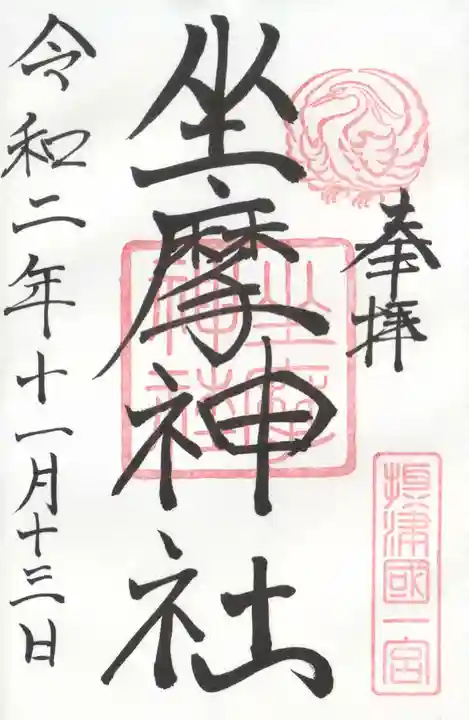 奉拝
摂津國一宮
坐摩神社
坐摩
神社
令和二年十一月十三日